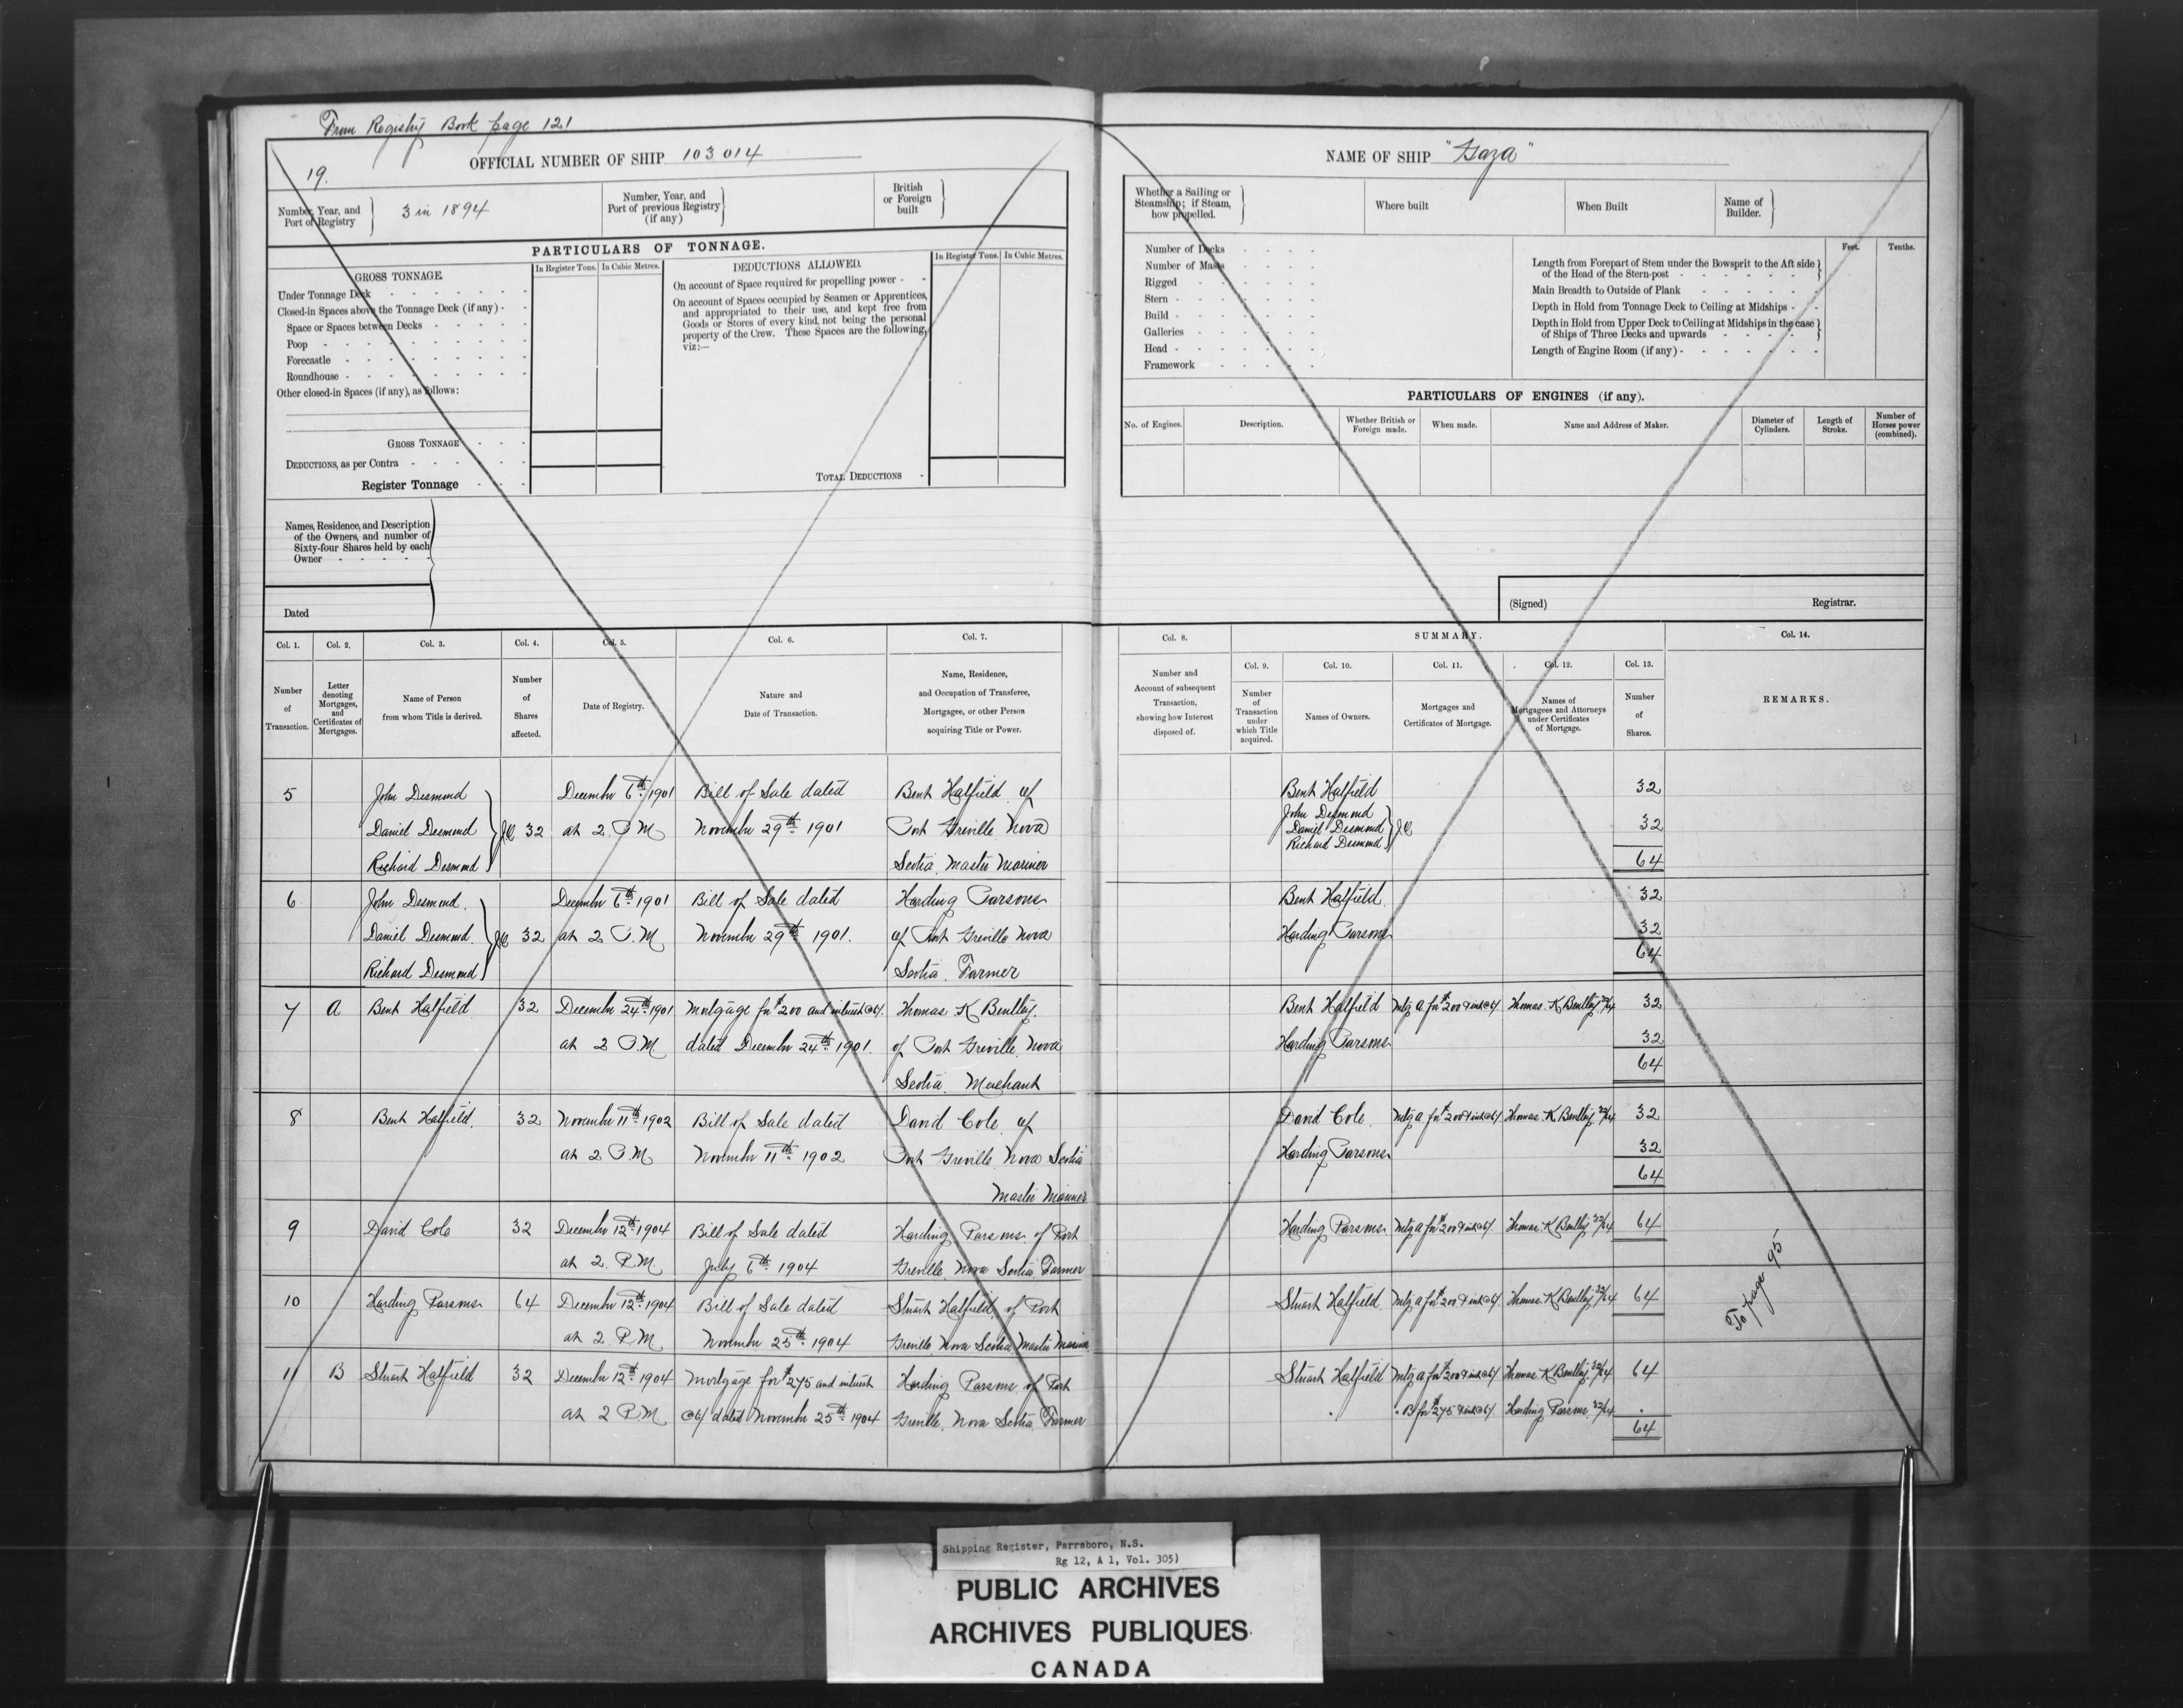 From Registry Book page 121
19.
OFFICIAL NUMBER OF SHIP 103 014
Number, Year, and Port of Registry } 3 in 1894
Number, Year, and Port of previous Registry (if any) }
British or Foreign built }
PARTICULARS OF TONNAGE.
GROSS TONNAGE.
In Register Tons. In Cubic Metres.
DEDUCTIONS ALLOWED.
In Register Tons. In Cubic Metres.
Under Tonnage Deck
Closed-in Spaces above the Tonnage Deck (if any)
Space or Spaces between Decks
Poop
Forecastle
Roundhouse
Other closed-in Spaces (if any), as follows:
GROSS TONNAGE
DEDUCTIONS, as per Contra
Register Tonnage
On account of Space required for propelling power
On account of Spaces occupied by Seamen or Apprentices,
and appropriated to their use, and kept free from
Goods or Stores of every kind, not being the personal
property of the Crew. These Spaces are the following,
viz:—
TOTAL DEDUCTIONS
Names, Residence, and Description
of the Owners, and number of
Sixty-four Shares held by each
Owner
Dated
NAME OF SHIP "Gaza"
Whether a Sailing or Steamship; if Steam, how propelled. }
Where built
When Built
Name of Builder. }
Number of Decks
Number of Masts
Rigged
Stern
Build
Galleries
Head
Framework
Feet. Tenths.
Length from Forepart of Stem under the Bowsprit to the Aft side
of the Head of the Stern-post
Main Breadth to Outside of Plank
Depth in Hold from Tonnage Deck to Ceiling at Midships
Depth in Hold from Upper Deck to Ceiling at Midships in the case
of Ships of Three Decks and upwards
Length of Engine Room (if any)
PARTICULARS OF ENGINES (if any).
No. of Engines. Description. Whether British or Foreign made. When made. Name and Address of Maker. Diameter of Cylinders. Length of Stroke. Number of Horses power (combined).
(Signed) Registrar.
Col. 1. Col. 2. Col. 3. Col. 4. Col. 5. Col. 6. Col. 7.
Number of Transaction.
Letter denoting Mortgages, and Certificates of Mortgages.
Name of Person from whom Title is derived.
Number of Shares affected.
Date of Registry.
Nature and Date of Transaction.
Name, Residence, and Occupation of Transferee, Mortgagee, or other Person acquiring Title or Power.
Col. 8. SUMMARY. Col. 14.
Col. 9. Col. 10. Col. 11. Col. 12. Col. 13.
Number and Account of subsequent Transaction, showing how Interest disposed of.
Number of Transaction under which Title acquired.
Names of Owners.
Mortgages and Certificates of Mortgage.
Names of Mortgagees and Attorneys under Certificates of Mortgage.
Number of Shares.
REMARKS.
5 John Desmond December 6th 1901 Bill of Sale dated Bent Hatfield of
Daniel Desmond J.O. 32 at 2 P.M November 29th 1901 Port Greville Nova
Richard Desmond Scotia Master Mariner
Bent Hatfield 32
John Desmond
Daniel Desmond J.O 32
Richard Desmond
64
6 John Desmond December 6th 1901 Bill of Sale dated Harding Parsons
Daniel Desmond J.O 32 at 2 P.M November 29th 1901. of Port Greville Nova
Richard Desmond Scotia. Farmer
Bent Hatfield 32
Harding Parsons 32
64
7 A Bent Hatfield 32 December 24th 1901 Mortgage for $200 and interest @ 6/. Thomas K Bentley.
at 2 P.M. dated December 24th 1901. of Port Greville Nova
Scotia. Merchant
Bent Hatfield Mtg A for $200 & int @ 6/ Thomas K Bentley 32/64 32
Harding Parsons 32
64
8 Bent Hatfield. 32 November 11th 1902 Bill of Sale dated David Cole of
at 2 P.M November 11th 1902 Port Greville Nova Scotia
Master Mariner
David Cole Mtg A for $200 & int @ 6/ Thomas K Bentley 32/64 32
Harding Parsons 32
64
9 David Cole 32 December 12th 1904 Bill of Sale dated Harding Parsons of Port
at 2. P.M. July 6th 1904 Greville Nova Scotia Farmer
Harding Parsons Mtg A for $200 & int @ 6/ Thomas K Bentley 32/64 64
10 Harding Parsons 64 December 12th 1904 Bill of Sale dated Stuart Hatfield of Port
at 2 P.M November 25th 1904 Greville Nova Scotia Master Mariner
Stuart Hatfield Mtg A for $200 & int @ 6/ Thomas K Bentley 32/64 64
11 B Stuart Hatfield 32 December 12th 1904 Mortgage for $275 and interest Harding Parsons of Port
at 2 P.M @ 6/ dated November 25th 1904 Greville Nova Scotia Farmer
Stuart Hatfield Mtg A for $200 & int @ 6/ Thomas K Bentley 32/64 64
" " B for $275 & int @ 6/ Harding Parsons 32/64 "
64
To page 95
Shipping Register, Parrsboro, N.S.
Rg 12, A 1, Vol. 305)
PUBLIC ARCHIVES
ARCHIVES PUBLIQUES
CANADA